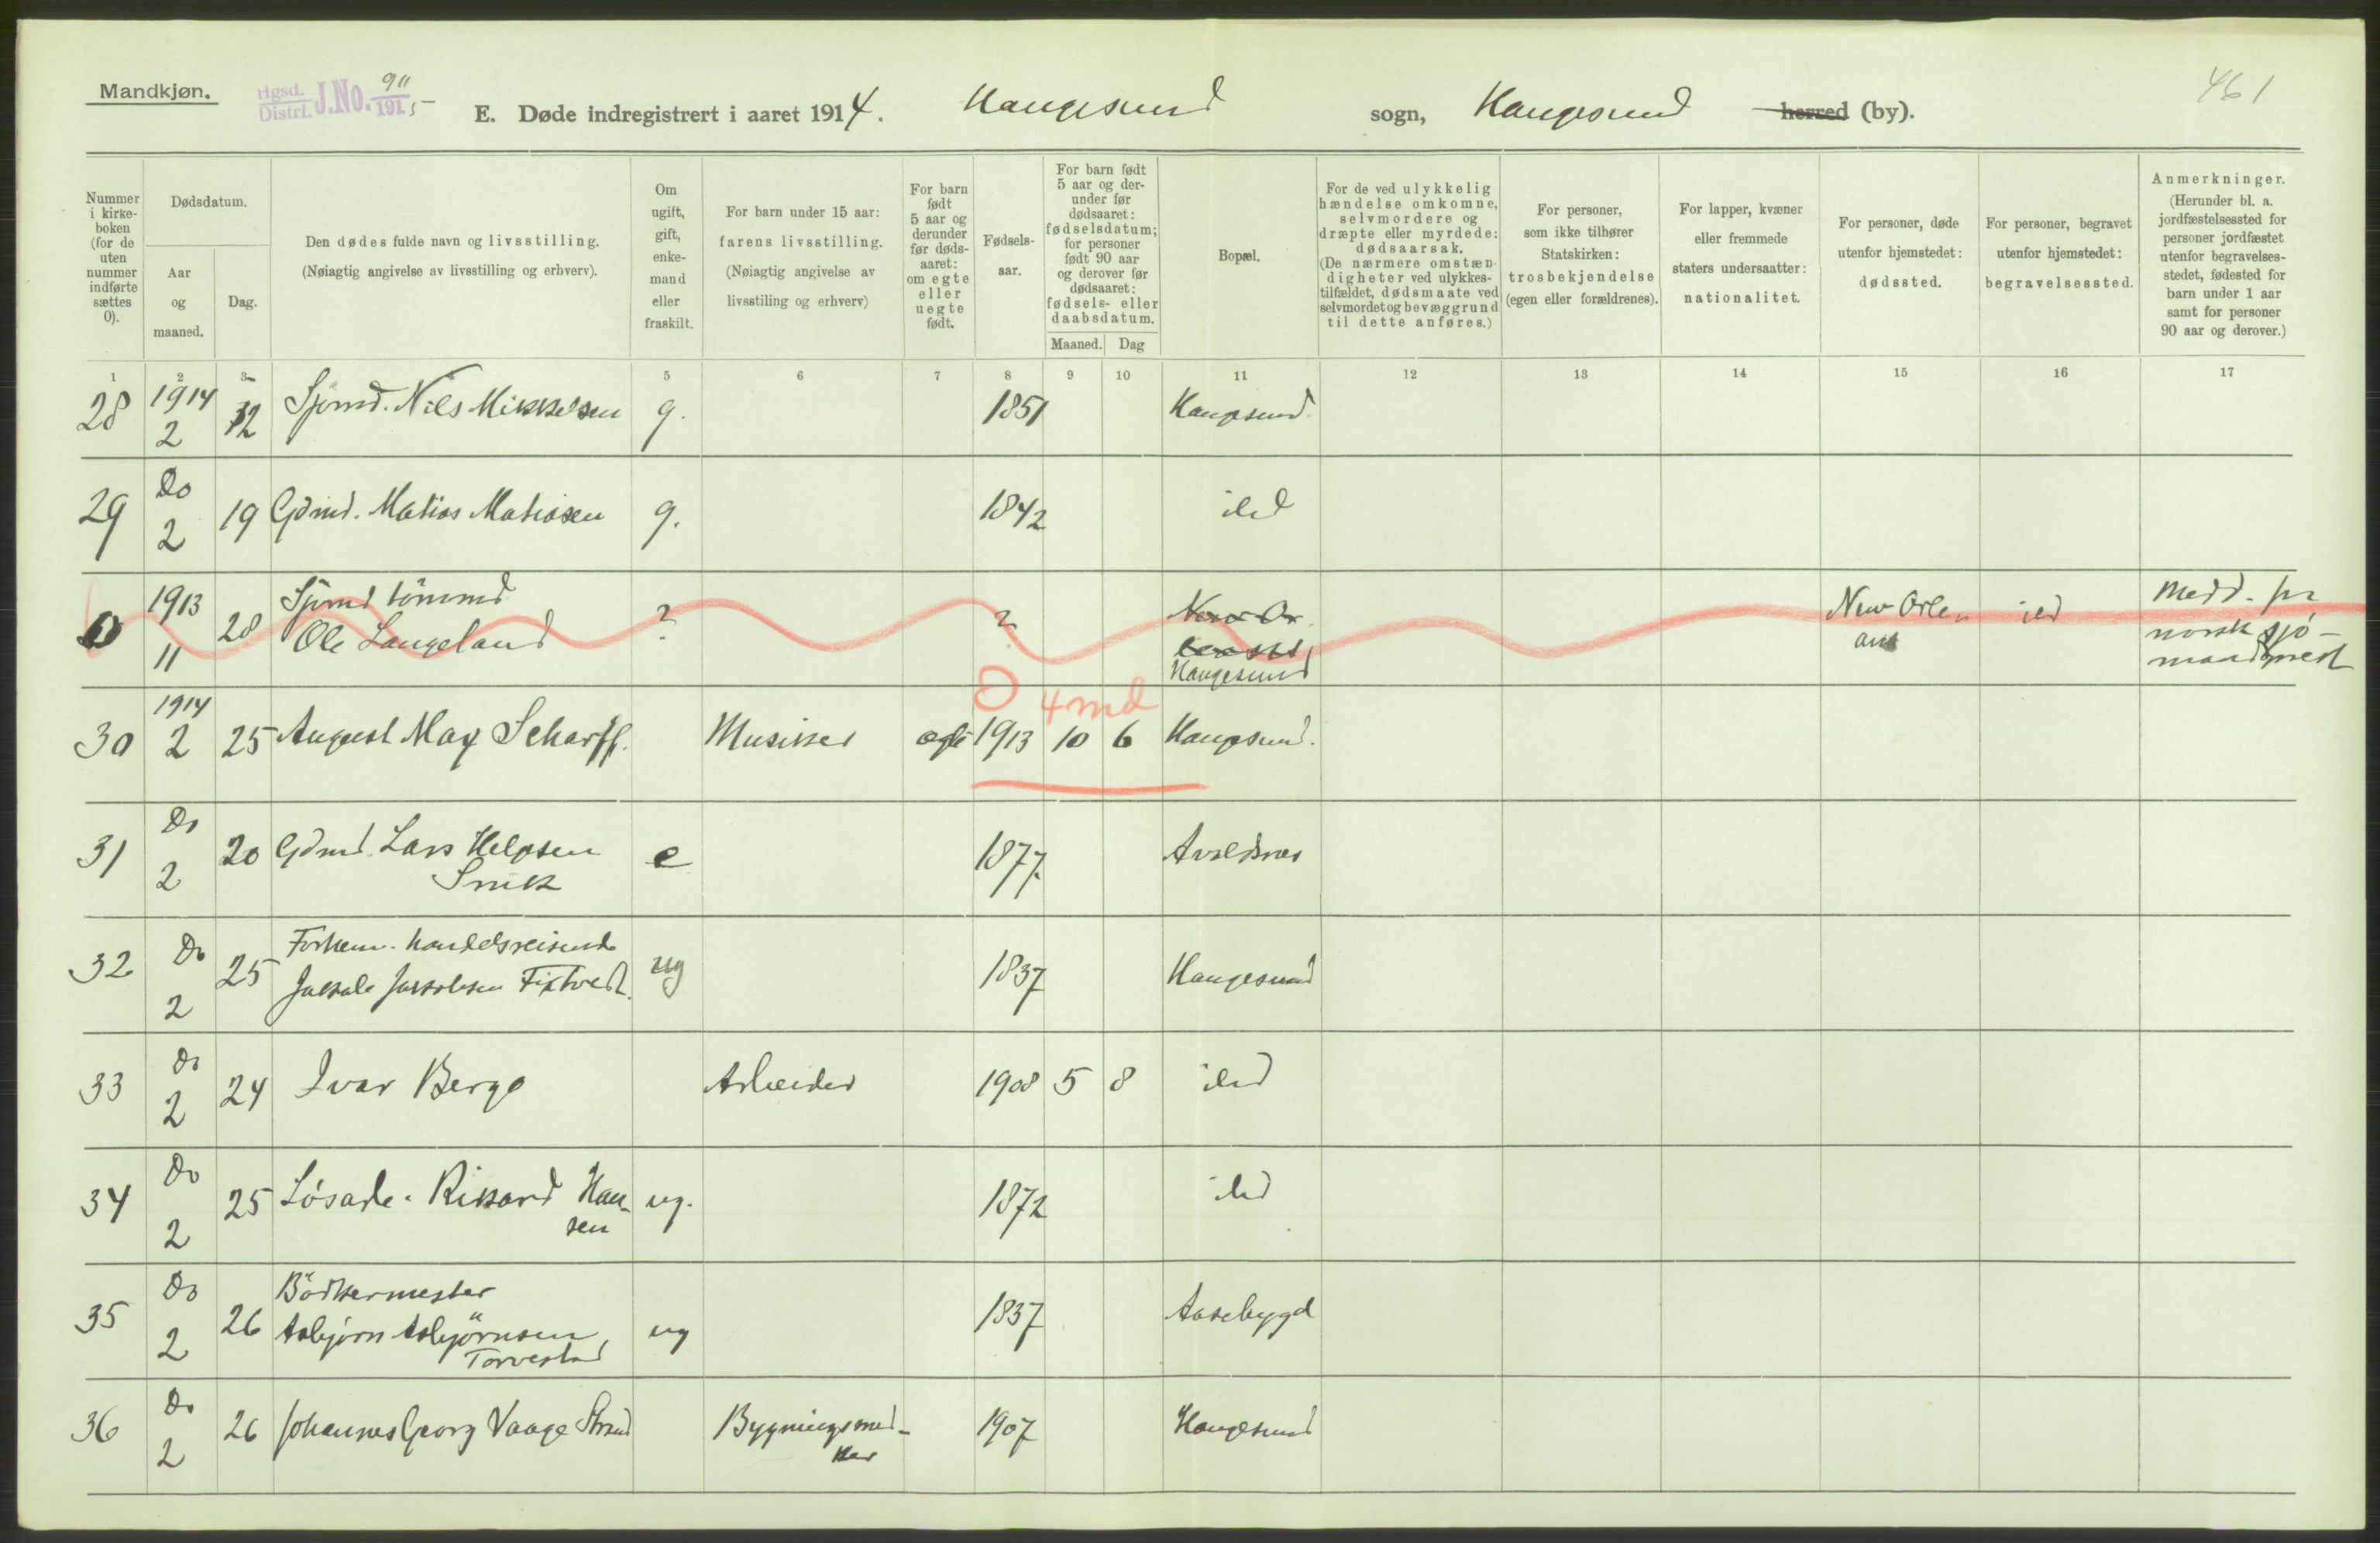 Mandkjøn.
Rigsd. Distrl. J.No. 911 1915
E. Døde indregistrert i aaret 1914. Haugesund sogn, Haugesund herred (by).
461
Nummer i kirke-boken (for de uten nummer indførte sættes 0).
Dødsdatum.
Aar og maaned.
Dag.
Den dødes fulde navn og livsstilling.
(Nøiagtig angivelse av livsstilling og erhverv).
Om ugift, gift, enke-mand eller fraskilt.
For barn under 15 aar: farens livsstilling.
(Nøiagtig angivelse av livsstiling og erhverv)
For barn født 5 aar og derunder før døds-aaret: om egte eller uegte født.
Fødsels-aar.
For barn født 5 aar og der-under før dødsaaret: fødselsdatum; for personer født 90 aar og derover før dødsaaret: fødsels- eller daabsdatum.
Maaned. Dag
Bopæl.
For de ved ulykkelig hændelse omkomne, selvmordere og dræpte eller myrdede: dødsaarsak.
(De nærmere omstæn-digheter ved ulykkes-tilfældet, dødsmaate ved selvmord et og bevæggrund til dette anføres.)
For personer, som ikke tilhører Statskirken: trosbekjendelse (egen eller forældrenes).
For lapper, kvæner eller fremmede staters undersaatter: nationalitet.
For personer, døde utenfor hjemstedet: dødssted.
For personer, begravet utenfor hjemstedet: begravelsessted.
Anmerkninger.
(Herunder bl. a. jordfæstelsessted for personer jordfæstet utenfor begravelses-stedet, fødested for barn under 1 aar samt for personer 90 aar og derover.)
1 2 3 5 6 7 8 9 10 11 12 13 14 15 16 17
28 1914 2 12 Sjømd. Nils Mikkelsen g. 1851 Haugesund
29 Do 2 19 Gdmd. Matias Matiasen g. 1842 ibd
0 1913 11 28 Sjømd tømmd
Ole Langeland ? ? Haugesund New Orle
ans ibd Medd. fra
norsk sjø-
mandsprest
0 4 md
30 1914 2 25 August Max Scharff. Musiker egte 1913 10 6 Haugesund.
31 Do 2 20 Gdmd. Lars Helgesen
Snik e 1877. Avaldsnes
32 Do 2 25 Forhenv. handelsreisende
Jakob Jakobsen Fixtvedt. ug 1837 Haugesund
33 Do 2 24 Ivar Berge Arbeider 1908 5 8 ibd
34 Do 2 25 Løsarb. Rikard Han-
sen ug. 1872 ibd
35 Do 2 26 Bødkermester
Asbjørn Asbjørnsen
Torvestad ug 1837 Aasebygd
36 Do 2 26 Johannes Georg Vaage Strand Bygningssned-
ker 1907 Haugesund